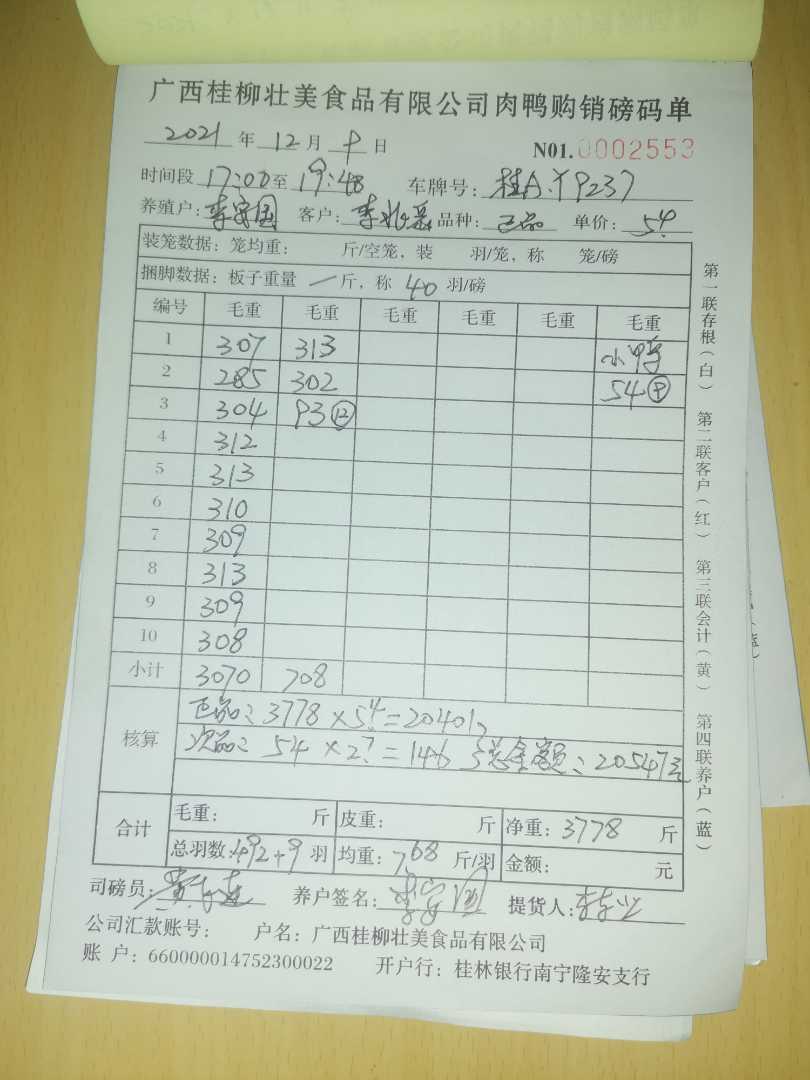 广西桂柳壮美食品有限公司肉鸭购销磅码单
2021 年 12 月 9 日
N01.0002553
时间段 17:00 至 19:48 车牌号: 桂A·Y9237
养殖户: 李守国 客户: 李 品种: 正品 单价: 5.4
装笼数据: 笼均重: 斤/空笼, 装 羽/笼, 称 笼/磅
捆脚数据: 板子重量 一 斤, 称 40 羽/磅
编号 毛重 毛重 毛重 毛重 毛重 毛重
1 307 313 小鸭
2 285 302 54⑨
3 304 93⑫
4 312
5 313
6 310
7 309
8 313
9 309
10 308
小计 3070 708
核算
正品: 3778×5.4=20401
次品: 54×2.7=146 总金额: 20547元
合计 毛重: 斤 皮重: 斤 净重: 3778 斤
总羽数: 492+9 羽 均重: 7.68 斤/羽 金额: 元
司磅员: 养户签名: 李守国 提货人:
公司汇款账号: 户名: 广西桂柳壮美食品有限公司
账 户: 660000014752300022 开户行: 桂林银行南宁隆安支行
第一联存根(白) 第二联客户(红) 第三联会计(黄) 第四联养户(蓝)